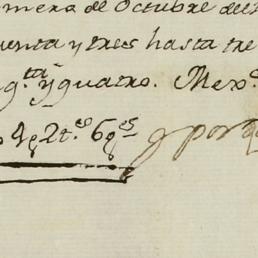 mera de Octubre del
uenta y tres hasta tre
g.ta y quatro. Mex.
4p 2t.s 6g.es